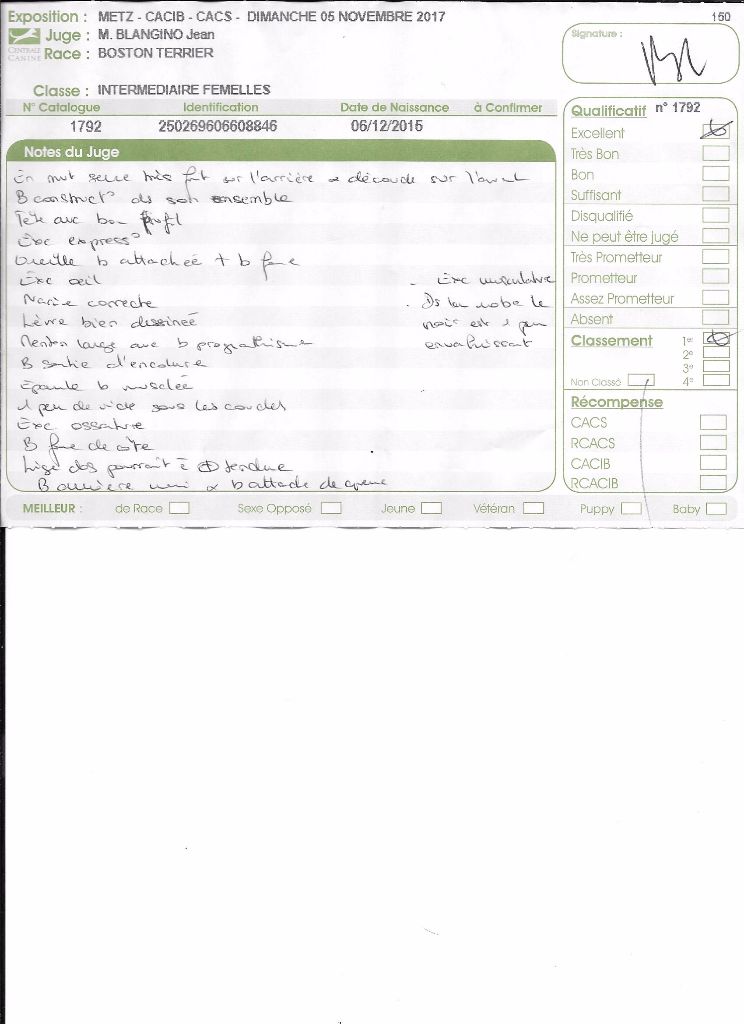 Exposition : METZ - CACIB - CACS - DIMANCHE 05 NOVEMBRE 2017
150
Juge : M. BLANGINO Jean
CENTRALE CANINE
Race : BOSTON TERRIER
Signature :
Classe : INTERMEDIAIRE FEMELLES
N° Catalogue Identification Date de Naissance à Confirmer
1792 250269606608846 06/12/2015
Notes du Juge
En mvt serre très fort sur l'arrière & découde sur l'avant
B construct° ds son ensemble
Tête avec bon profil
Exc express°
Oreille b attachée + b forme
Exc oeil
Narine correcte
Lèvre bien dessinée
Menton large avec b prognathisme
B sortie d'encolure
Epaule b musclée
1 peu de vide sous les coudes
Exc ossature
B forme de côte
Ligne dos pourrait ê + tendue
B arrière & b attache de queue
- Exc musculature
. Ds la robe le
noir est 1 peu
envahissant
Qualificatif n° 1792
Excellent
Très Bon
Bon
Suffisant
Disqualifié
Ne peut être jugé
Très Prometteur
Prometteur
Assez Prometteur
Absent
Classement 1er
2e
3e
Non Classé 4e
Récompense
CACS
RCACS
CACIB
RCACIB
MEILLEUR : de Race Sexe Opposé Jeune Vétéran Puppy Baby